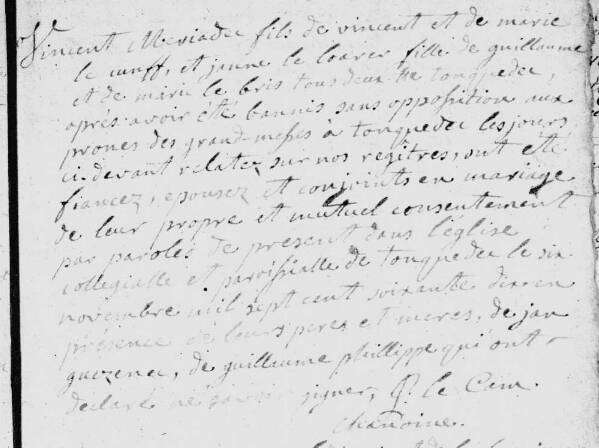 Vincent Meriadec fils de vincent et de marie
le cunff, et jeanne le loarer fille de guillaume
et de marie le bris tous deux de tonquedec,
après avoir été bannis sans opposition aux
prones des grand-messes à tonquedec les jours
ci-devant relatez sur nos regîtres, ont été
fiancez, epousez et conjoints en mariage
de leur propre et mutuel consentement
par paroles de present dans l'église
collegialle et paroissialle de tonquedec le six
novembre mil sept cent soixante dix en
presence de leurs peres et meres, de jan
guezenec, de guillaume phillippe qui ont
declaré ne savoir signer, le Cam.
chanoine.